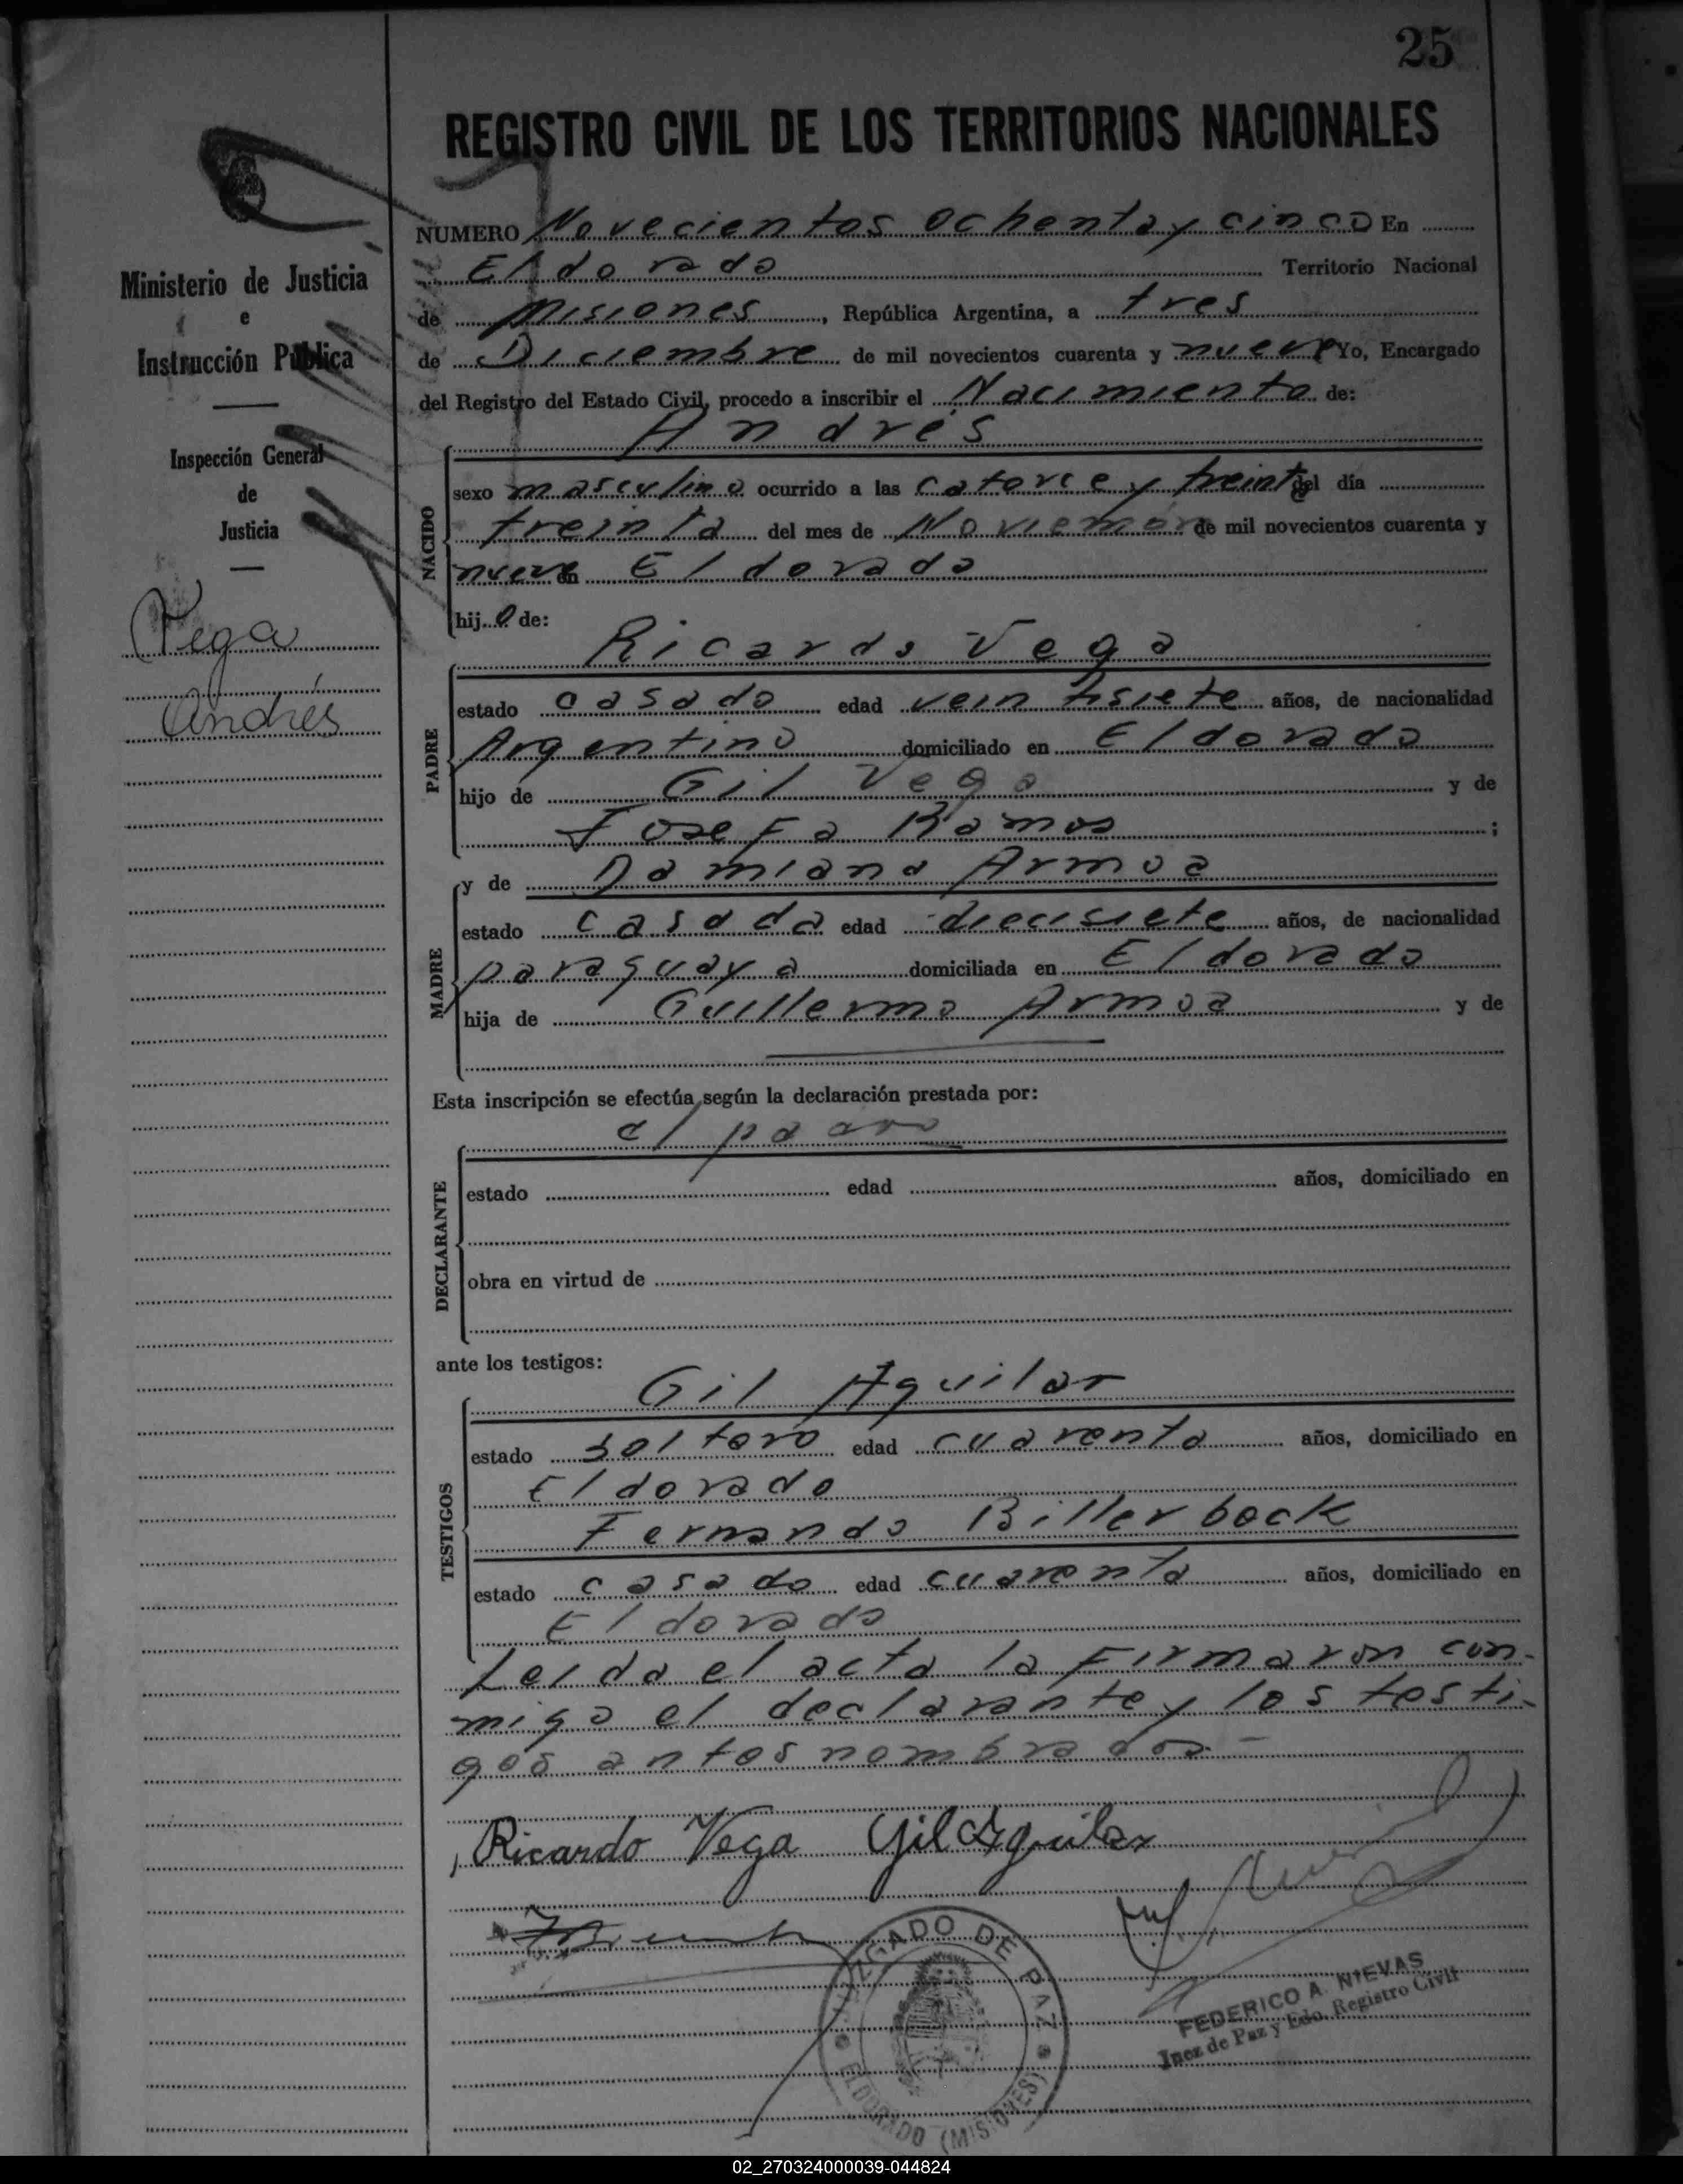 25
REGISTRO CIVIL DE LOS TERRITORIOS NACIONALES
Ministerio de Justicia
e
Instrucción Pública
Inspección General
de
Justicia
Vega
Andrés
NUMERO Novecientos ochenta y cinco En
Eldorado Territorio Nacional
de Misiones, República Argentina, a tres
de Diciembre de mil novecientos cuarenta y nueve Yo, Encargado
del Registro del Estado Civil, procedo a inscribir el Nacimiento de:
Andrés
NACIDO
sexo masculino ocurrido a las catorce y treinta del día
treinta del mes de Noviembre de mil novecientos cuarenta y
nueve en Eldorado
hijo de:
Ricardo Vega
PADRE
estado casado edad veintisiete años, de nacionalidad
Argentino domiciliado en Eldorado
hijo de Gil Vega y de
Josefa Ramos;
y de Damiana Armoa
MADRE
estado casada edad diecisiete años, de nacionalidad
paraguaya domiciliada en Eldorado
hija de Guillermo Armoa y de
Esta inscripción se efectúa según la declaración prestada por:
el padre
DECLARANTE
estado edad años, domiciliado en
obra en virtud de
ante los testigos:
Gil Aguilar
TESTIGOS
estado soltero edad cuarenta años, domiciliado en
Eldorado
Fernando Billerbeck
estado casado edad cuarenta años, domiciliado en
Eldorado
Leida el acta la Firmaron con-
migo el declarante y los testi-
gos antes nombrados -
Ricardo Vega Gil Aguilar
JUZGADO DE PAZ
ELDORADO (MISIONES)
FEDERICO A. NIEVAS
Juez de Paz y Edo. Registro Civil
02_270324000039-044824